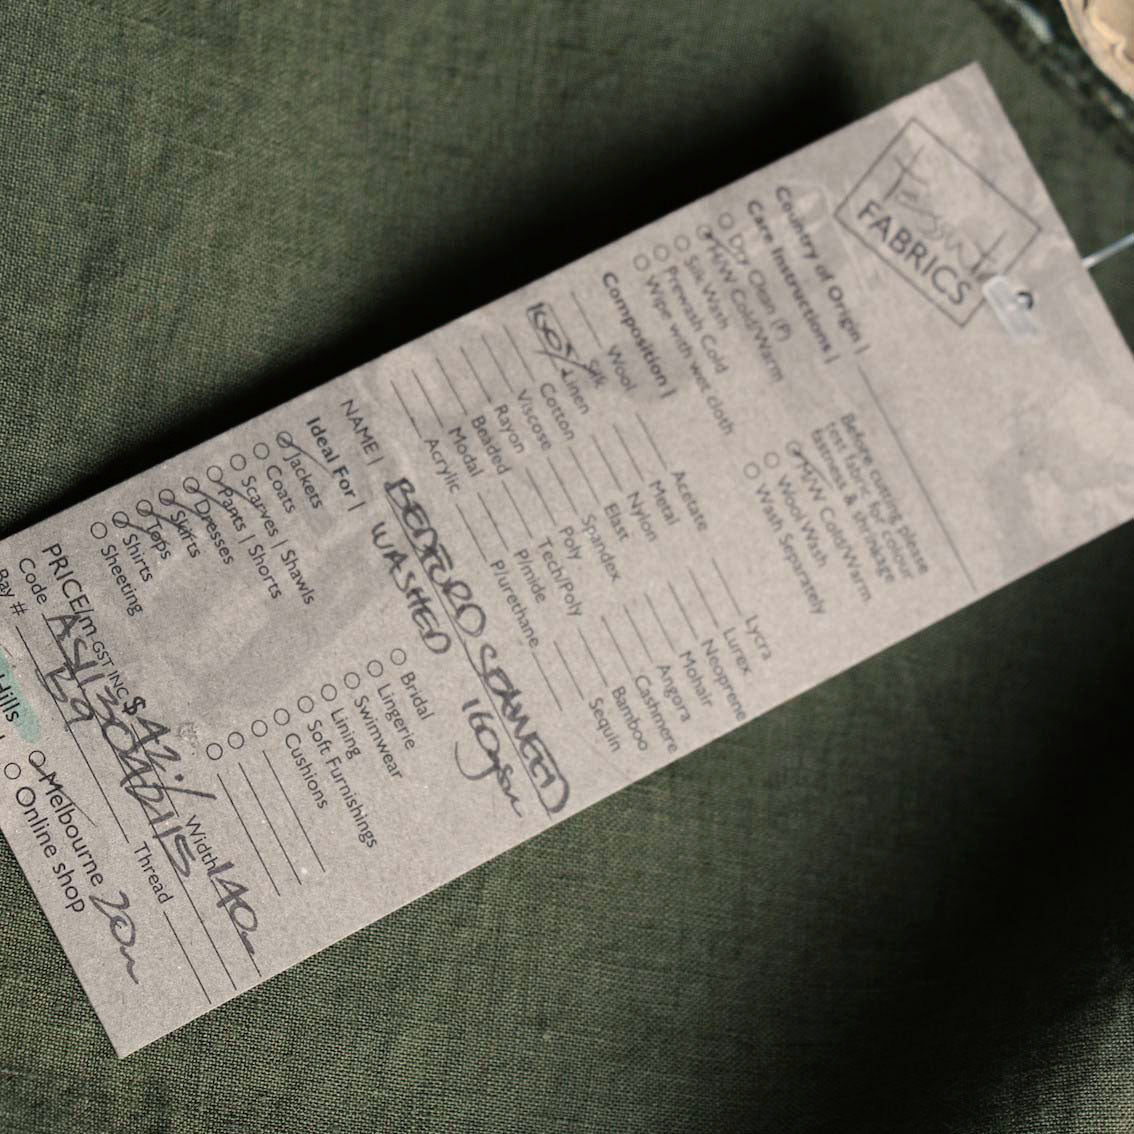 Tessuti
FABRICS
Country of Origin |
Care Instructions |
Before cutting please
test fabric for colour
fastness & shrinkage
Dry Clean (P)
H/W Cold/Warm
H/W Cold/Warm
Silk Wash
Wool Wash
Prewash Cold
Wash Separately
Wipe with wet cloth
Composition |
Wool Acetate Lycra
Silk Metal Lurex
100% Linen Nylon Neoprene
Cotton Elast Mohair
Viscose Spandex Angora
Rayon Poly Cashmere
Beaded Tech/Poly Bamboo
Modal P/mide Sequin
Acrylic P/urethane
NAME | BEDFORD SEAWEED
WASHED 160gsm
Ideal For |
Jackets Bridal
Coats Lingerie
Scarves | Shawls Swimwear
Pants | Shorts Lining
Dresses Soft Furnishings
Skirts Cushions
Tops
Shirts
Sheeting
PRICE/m GST INC $42.- Width 140
Code
Bay # B9 Thread
Hills Melbourne 20m
Online shop